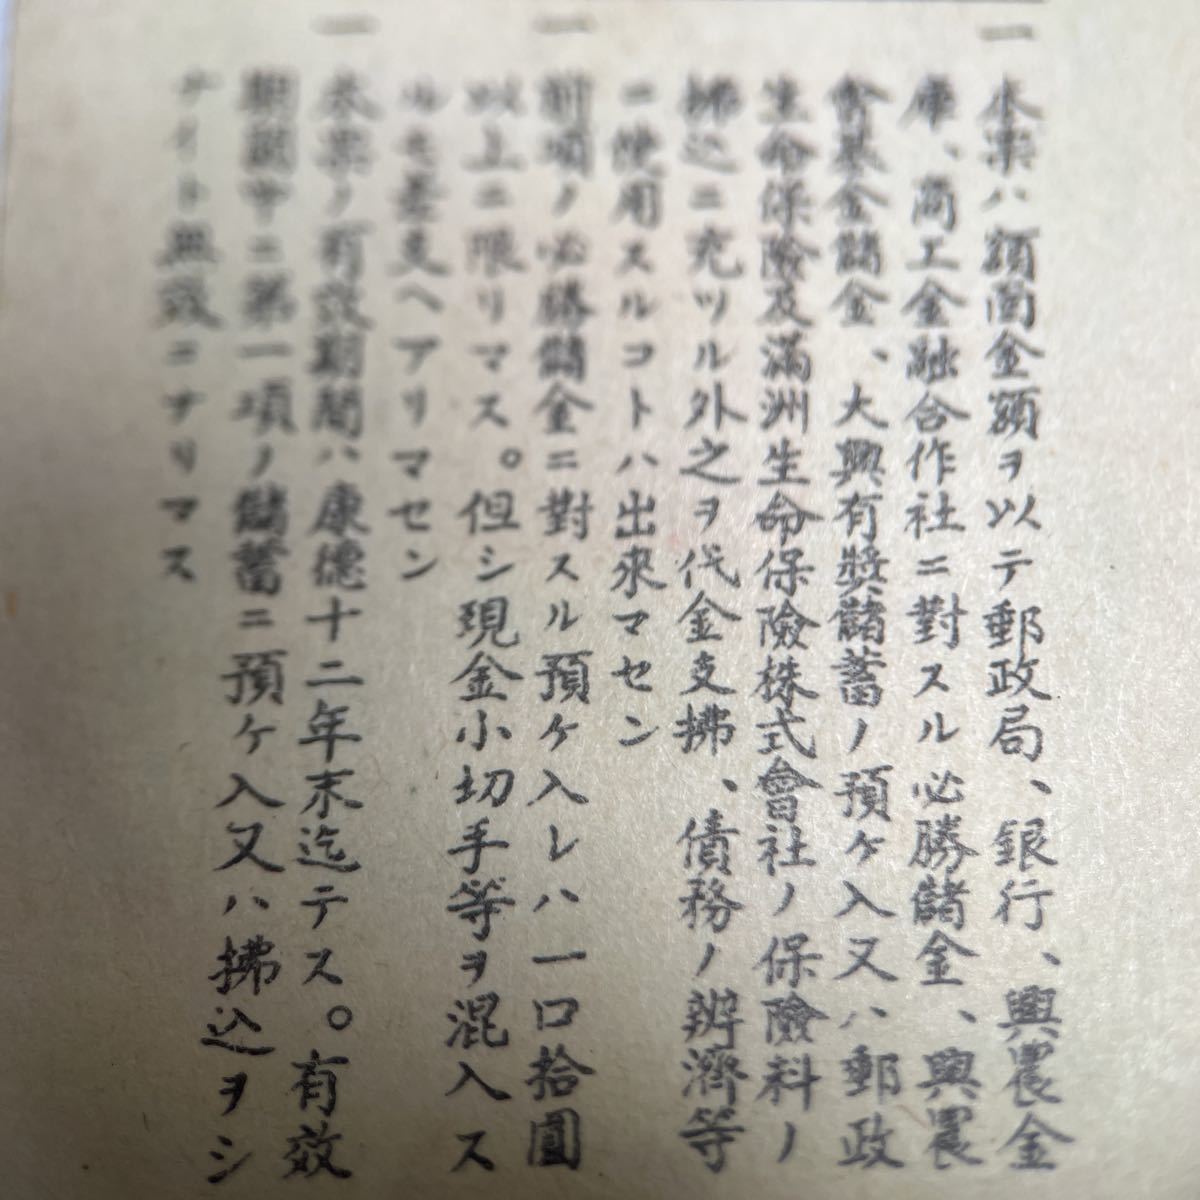 一 本票ハ額面金額ヲ以テ郵政局、銀行、興農金
庫、商工金融合作社ニ對スル必勝儲金、興農
會基金儲金、大興有獎儲蓄ノ預ケ入又ハ郵政
生命保險及滿洲生命保險株式會社ノ保險料ノ
拂込ニ充ツル外之ヲ代金支拂、債務ノ辨濟等
ニ使用スルコトハ出來マセン
一 前項ノ必勝儲金ニ對スル預ケ入レハ一口拾圓
以上ニ限リマス。但シ現金小切手等ヲ混入ス
ルモ差支ヘアリマセン
一 本票ノ有效期間ハ康德十二年末迄テス。有效
期間中ニ第一項ノ儲蓄ニ預ケ入又ハ拂込ヲシ
ナイト無效ニナリマス